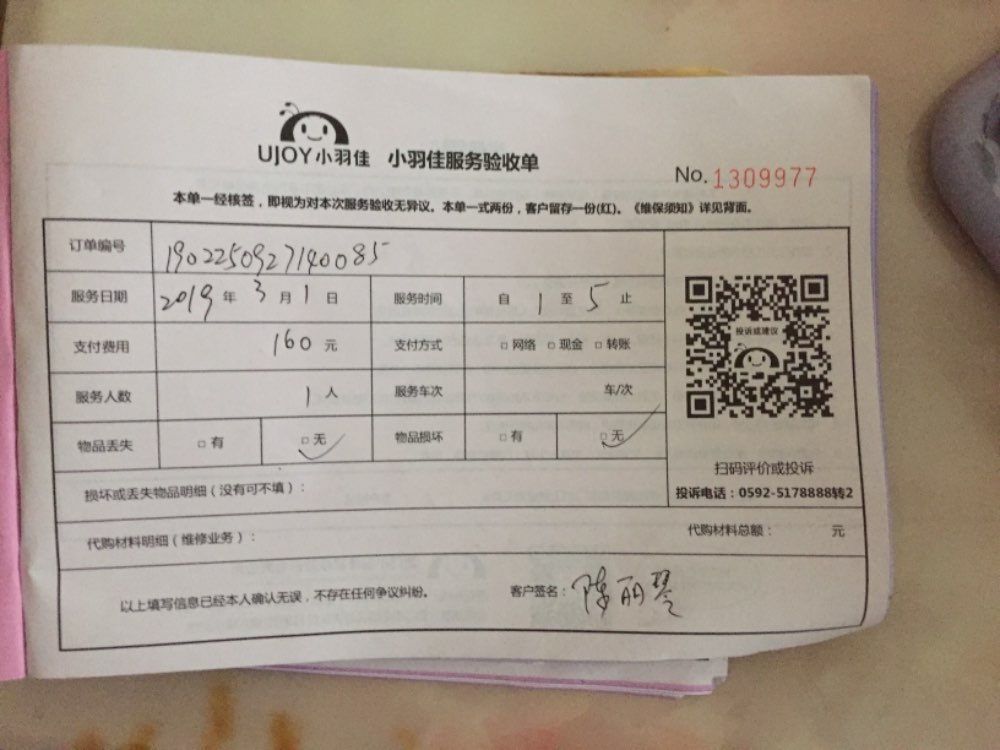 UJOY小羽佳 小羽佳服务验收单
No. 1309977
本单一经核签，即视为对本次服务验收无异议。本单一式两份，客户留存一份(红)。《维保须知》详见背面。
订单编号 1902250927140085
服务日期 2019年3月1日 服务时间 自1至5止
支付费用 160元 支付方式 □网络 □现金 □转账
投诉或建议
服务人数 1人 服务车次 车/次
物品丢失 □有 □无 物品损坏 □有 □无
扫码评价或投诉
投诉电话：0592-5178888转2
损坏或丢失物品明细（没有可不填）：
代购材料明细（维修业务）： 代购材料总额： 元
以上填写信息已经本人确认无误，不存在任何争议纠纷。 客户签名：陈丽琴